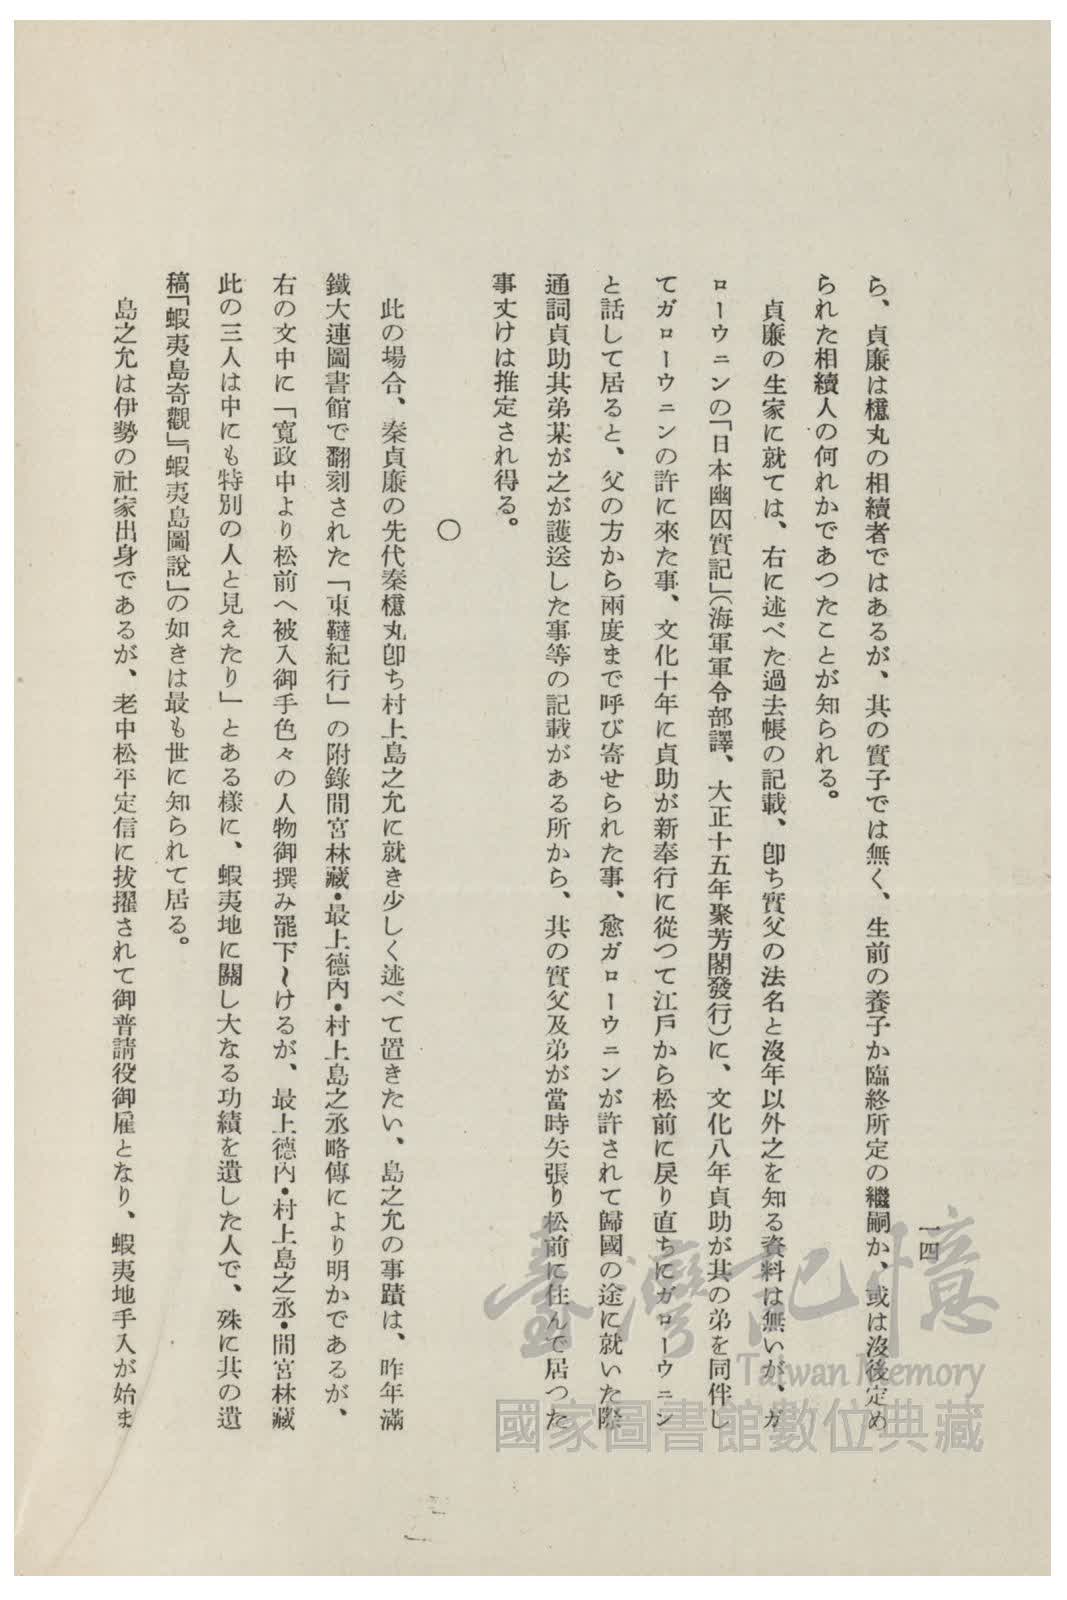 一四
ら、貞廉は檍丸の相續者ではあるが、其の實子では無く、生前の養子か臨終所定の繼嗣か、或は沒後定め
られた相續人の何れかであつたことが知られる。
貞廉の生家に就ては、右に述べた過去帳の記載、卽ち實父の法名と沒年以外之を知る資料は無いが、ガ
ローウニンの「日本幽囚實記」(海軍軍令部譯、大正十五年聚芳閣發行)に、文化八年貞助が其の弟を同伴し
てガローウニンの許に來た事、文化十年に貞助が新奉行に從つて江戸から松前に戻り直ちにガローウニン
と話して居ると、父の方から兩度まで呼び寄せられた事、愈ガローウニンが許されて歸國の途に就いた際
通詞貞助其弟某が之が護送した事等の記載がある所から、其の實父及弟が當時矢張り松前に住んで居つた
事丈けは推定され得る。
〇
此の場合、秦貞廉の先代秦檍丸卽ち村上島之允に就き少しく述べて置きたい、島之允の事蹟は、昨年滿
鐵大連圖書館で翻刻された「東韃紀行」の附錄間宮林藏・最上德內・村上島之丞略傳により明かであるが、
右の文中に「寬政中より松前へ被入御手色々の人物御撰み罷下〜けるが、最上德內・村上島之丞・間宮林藏
此の三人は中にも特別の人と見えたり」とある樣に、蝦夷地に關し大なる功績を遺した人で、殊に其の遺
稿「蝦夷島奇觀」「蝦夷島圖說」の如きは最も世に知られて居る。
島之允は伊勢の社家出身であるが、老中松平定信に拔擢されて御普請役御雇となり、蝦夷地手入が始ま
臺灣記憶
Taiwan Memory
國家圖書館數位典藏